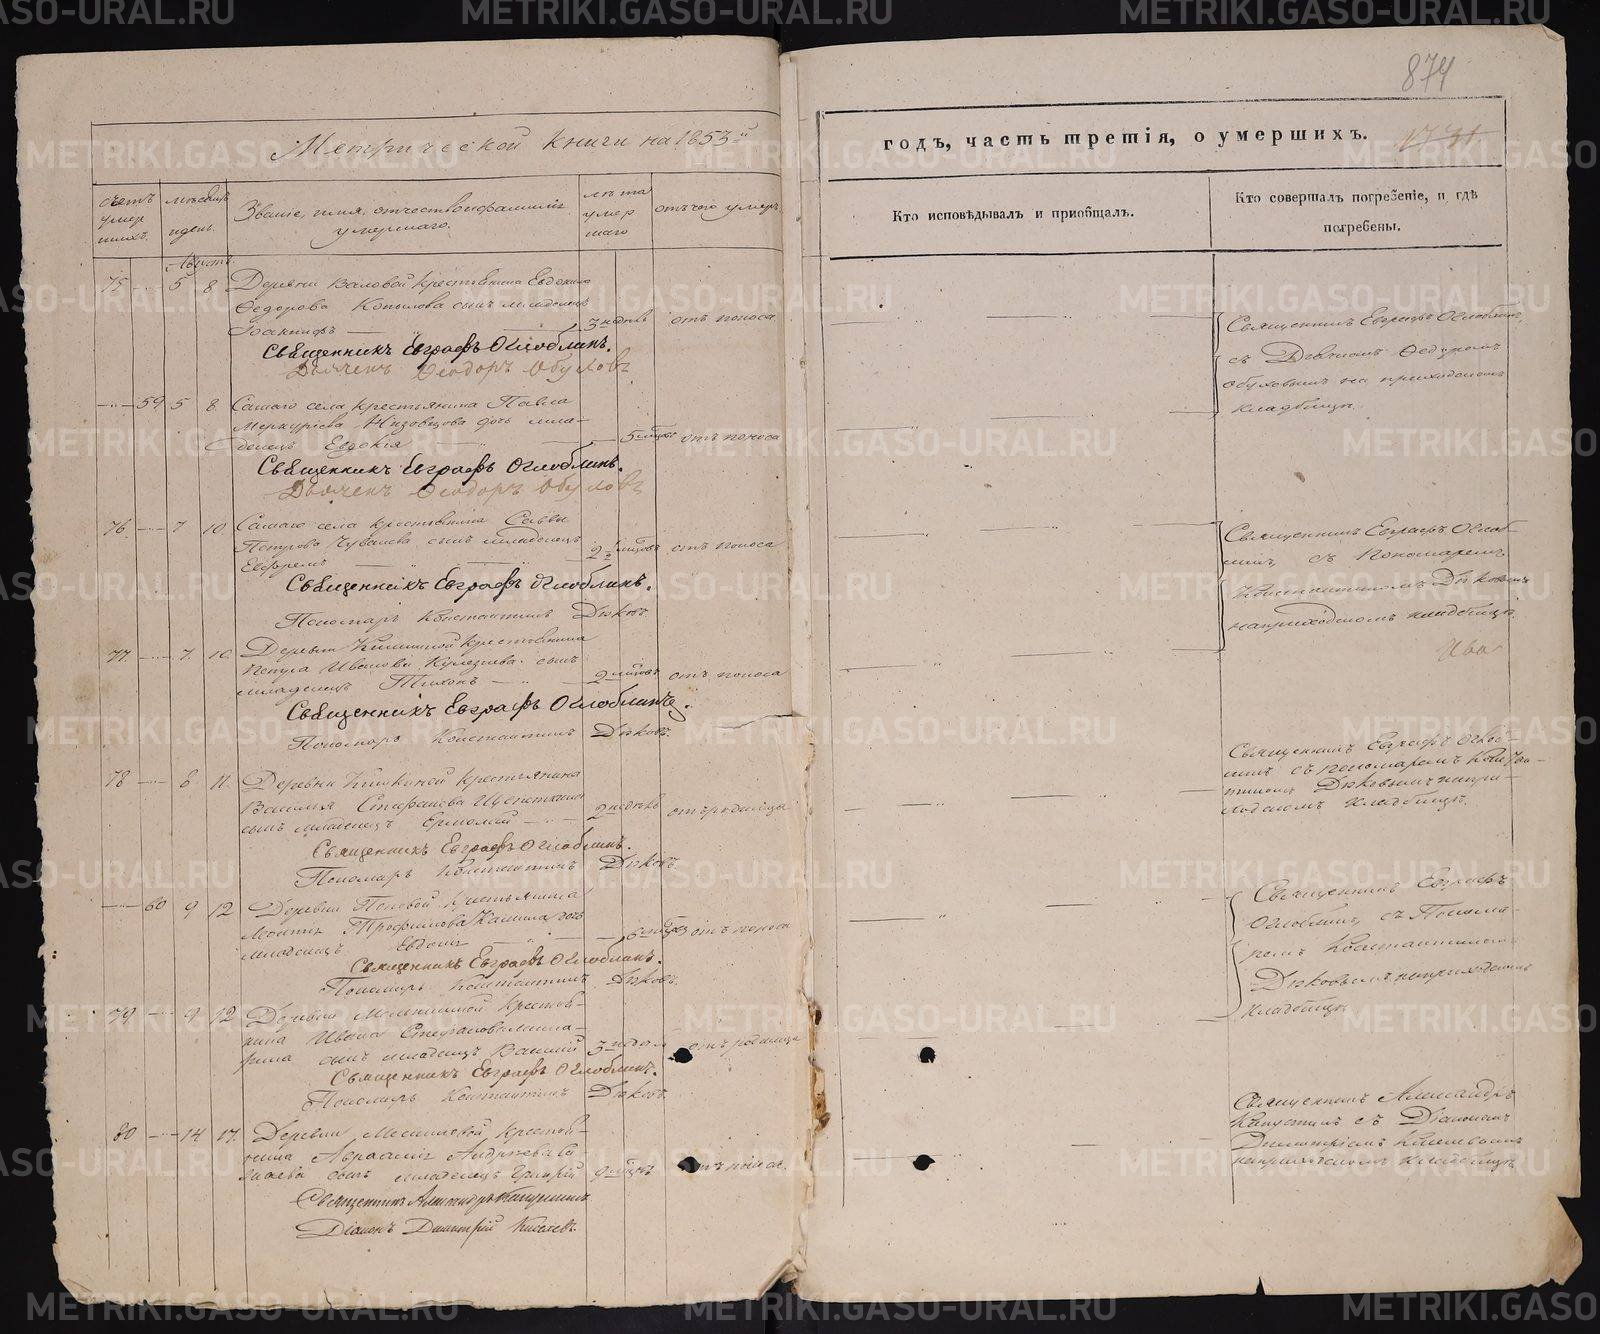 874
Метрической книги на 1853й
годъ, часть третія, о умершихъ.
счетъ умер шихъ.
мѣсяцъ и день.
Званіе, имя, отчество и фамилія умершаго.
лѣта умер шаго
отъ чего умеръ
Кто исповѣдывалъ и пріобщалъ.
Кто совершалъ погребеніе, и гдѣ погребены.
Августъ
75 5 8 Деревни Валовой крестьянина Евдокима
Ѳедорова Копылова сынъ младенецъ
3 недѣль отъ поноса
Священникъ Евграфъ Оглоблинъ.
Дьячекъ Ѳеодоръ Обуховъ
Священникъ Евграфъ Оглоблинъ,
съ Дьячкомъ Ѳедоромъ
Обуховымъ на приходскомъ
кладбищѣ.
59 5 8 Самаго села крестьянина Павла
Меркуріева Низовцова дочь мла-
денецъ Евдокія 5 мѣсяц отъ поноса
Священникъ Евграфъ Оглоблинъ.
Дьячекъ Ѳеодоръ Обуховъ
76 7 10 Самаго села крестьянина Саввы
Петрова Чувашева сынъ младенецъ
Ефремъ 2 мѣсяц отъ поноса
Священникъ Евграфъ Оглоблинъ.
Пономарь Константинъ Дюковъ.
Священникъ Евграфъ Оглоб-
линъ, съ Пономаремъ
Константиномъ Дюковымъ
на приходскомъ кладбищѣ.
77 7 10 Деревни крестьянина
Петра Иванова сынъ
младенецъ Тихонъ 2 мѣсяц отъ поноса
Священникъ Евграфъ Оглоблинъ.
Пономарь Константинъ Дюковъ.
78 8 11 Деревни крестьянина
Василія Стефанова Щепеткина
сынъ младенецъ Ермолай 2 недѣль отъ родимца
Священникъ Евграфъ Оглоблинъ.
Пономарь Константинъ Дюковъ.
Священникъ Евграфъ Оглоб-
линъ съ пономаремъ Констан-
тиномъ Дюковымъ на при-
ходскомъ кладбищѣ.
60 9 12 Деревни Половой крестьянина
Трофимова дочь
младенецъ 6 мѣсяц отъ поноса
Священникъ Евграфъ Оглоблинъ.
Пономарь Константинъ Дюковъ.
Священникъ Евграфъ
Оглоблинъ, съ Понома-
ремъ Константиномъ
Дюковымъ на приходскомъ
кладбищѣ
79 9 12 Деревни крестья-
нина Ивана Стефанова
сынъ младенецъ Василій 3 недѣл отъ родимца
Священникъ Евграфъ Оглоблинъ.
Пономарь Константинъ Дюковъ.
80 14 17 Деревни крестья-
нина Авраамія Андреева
сынъ младенецъ Григорій 9 мѣсяц отъ поноса.
Священникъ Александръ Капустинъ
Діаконъ Димитрій Киселевъ.
Священникъ Александръ
Капустинъ съ Діакономъ
Димитріемъ Киселевымъ
на приходскомъ кладбищѣ
METRIKI.GASO-URAL.RU